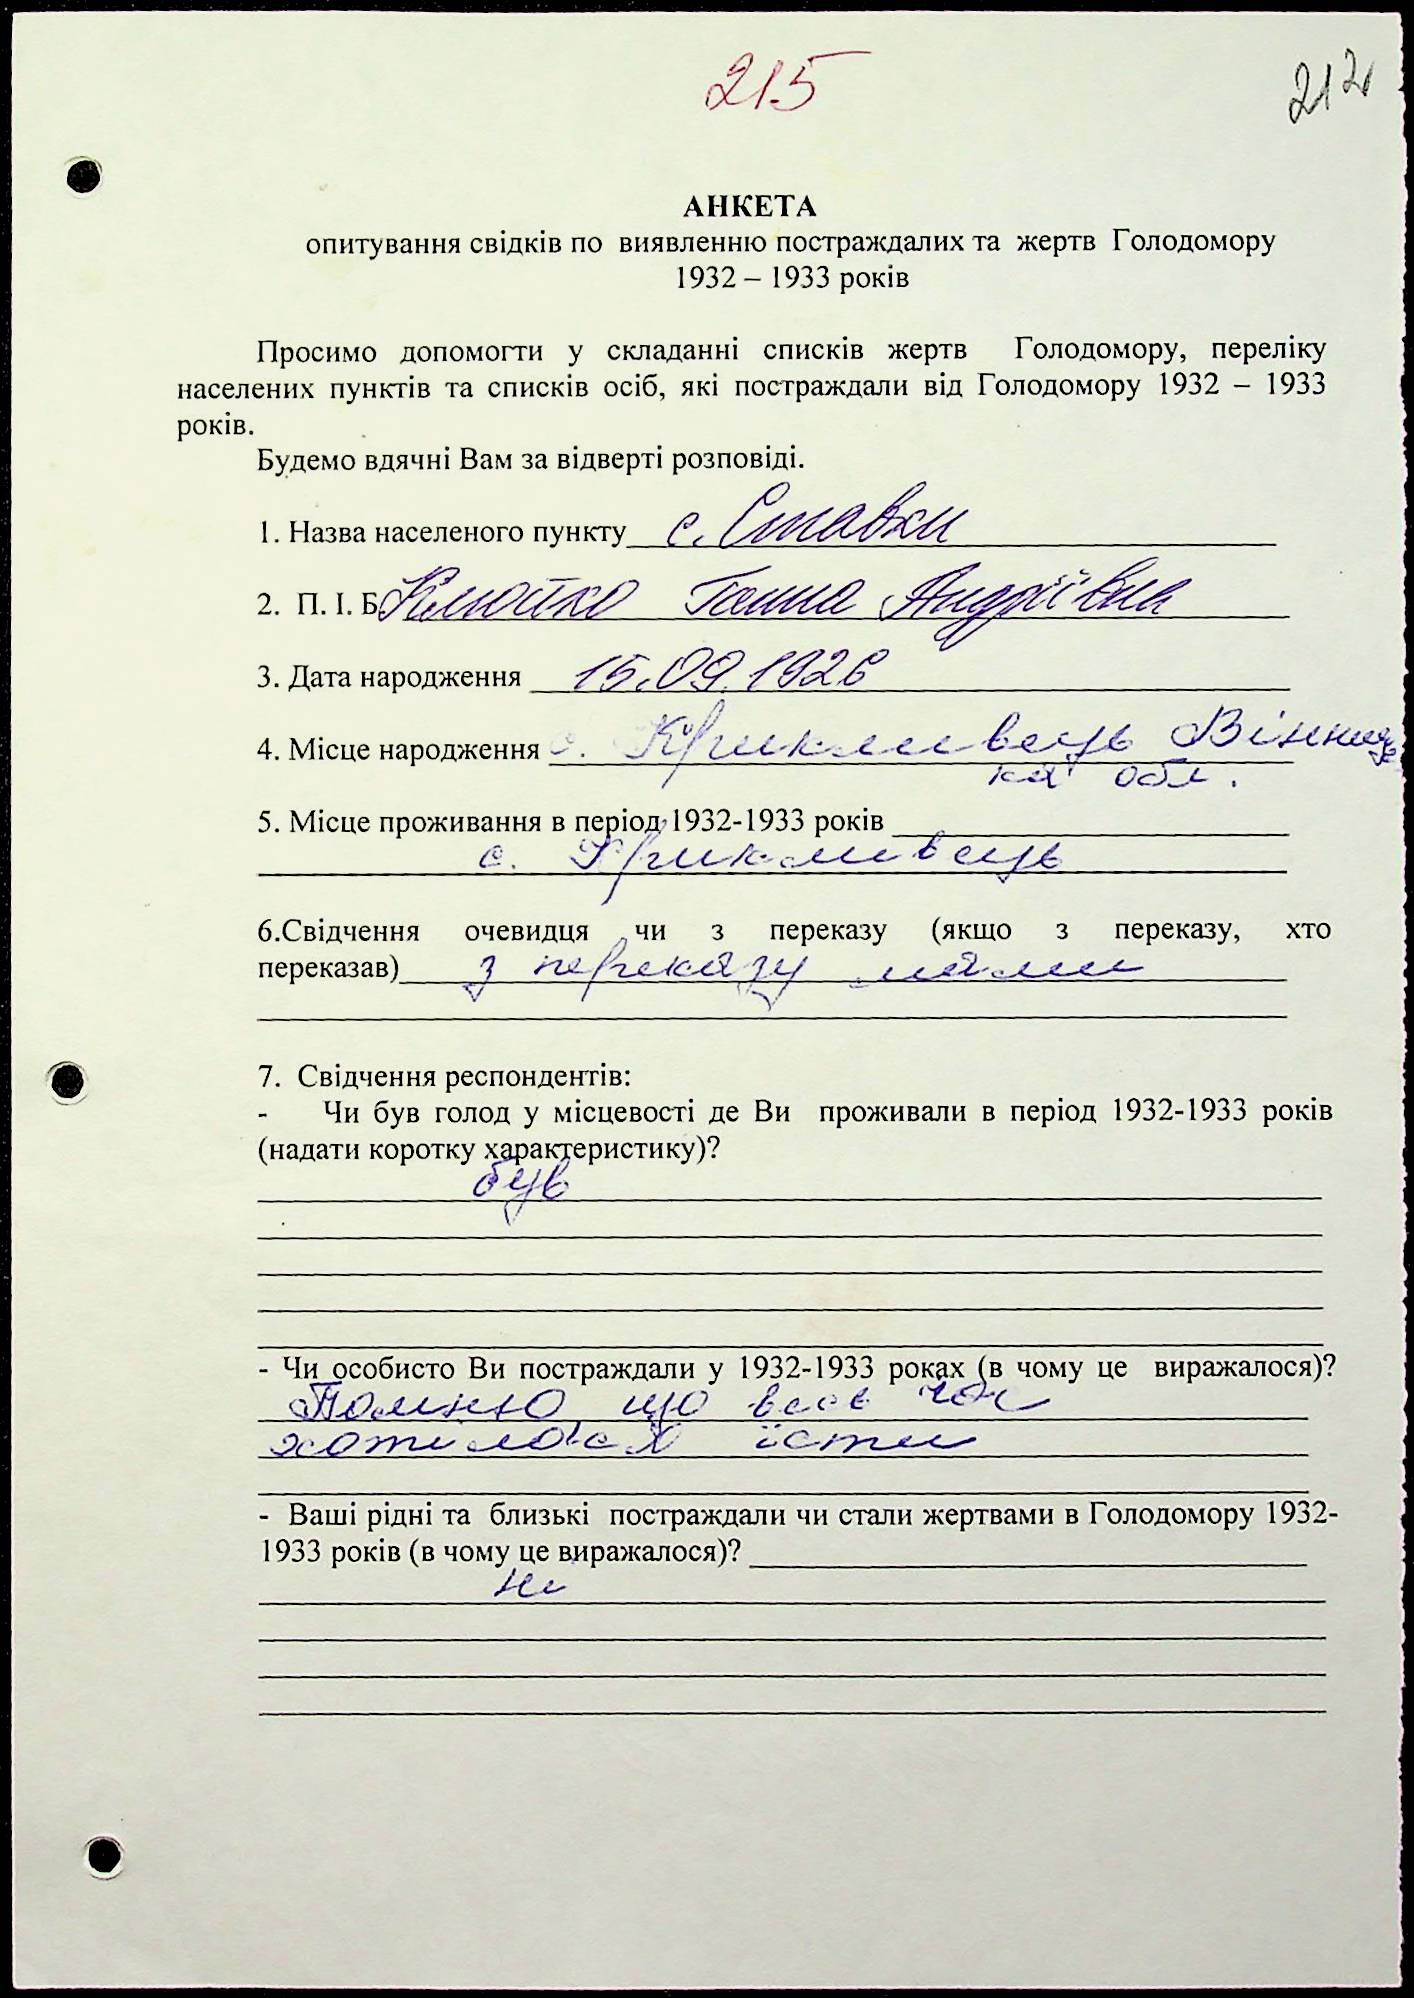 215
212
АНКЕТА
опитування свідків по виявленню постраждалих та жертв Голодомору
1932 – 1933 років
Просимо допомогти у складанні списків жертв Голодомору, переліку
населених пунктів та списків осіб, які постраждали від Голодомору 1932 – 1933
років.
Будемо вдячні Вам за відверті розповіді.
1. Назва населеного пункту с. Ставки
2. П. І. Б. Клюйко Ганна Андріївна
3. Дата народження 15.09.1926
4. Місце народження с. Крикливець Вінниць
ка обл.
5. Місце проживання в період 1932-1933 років
с. Крикливець
6.Свідчення очевидця чи з переказу (якщо з переказу, хто
переказав) з переказу мами
7. Свідчення респондентів:
- Чи був голод у місцевості де Ви проживали в період 1932-1933 років
(надати коротку характеристику)?
був
- Чи особисто Ви постраждали у 1932-1933 роках (в чому це виражалося)?
Помню що весь час
хотілося їсти
- Ваші рідні та близькі постраждали чи стали жертвами в Голодомору 1932-
1933 років (в чому це виражалося)?
ні